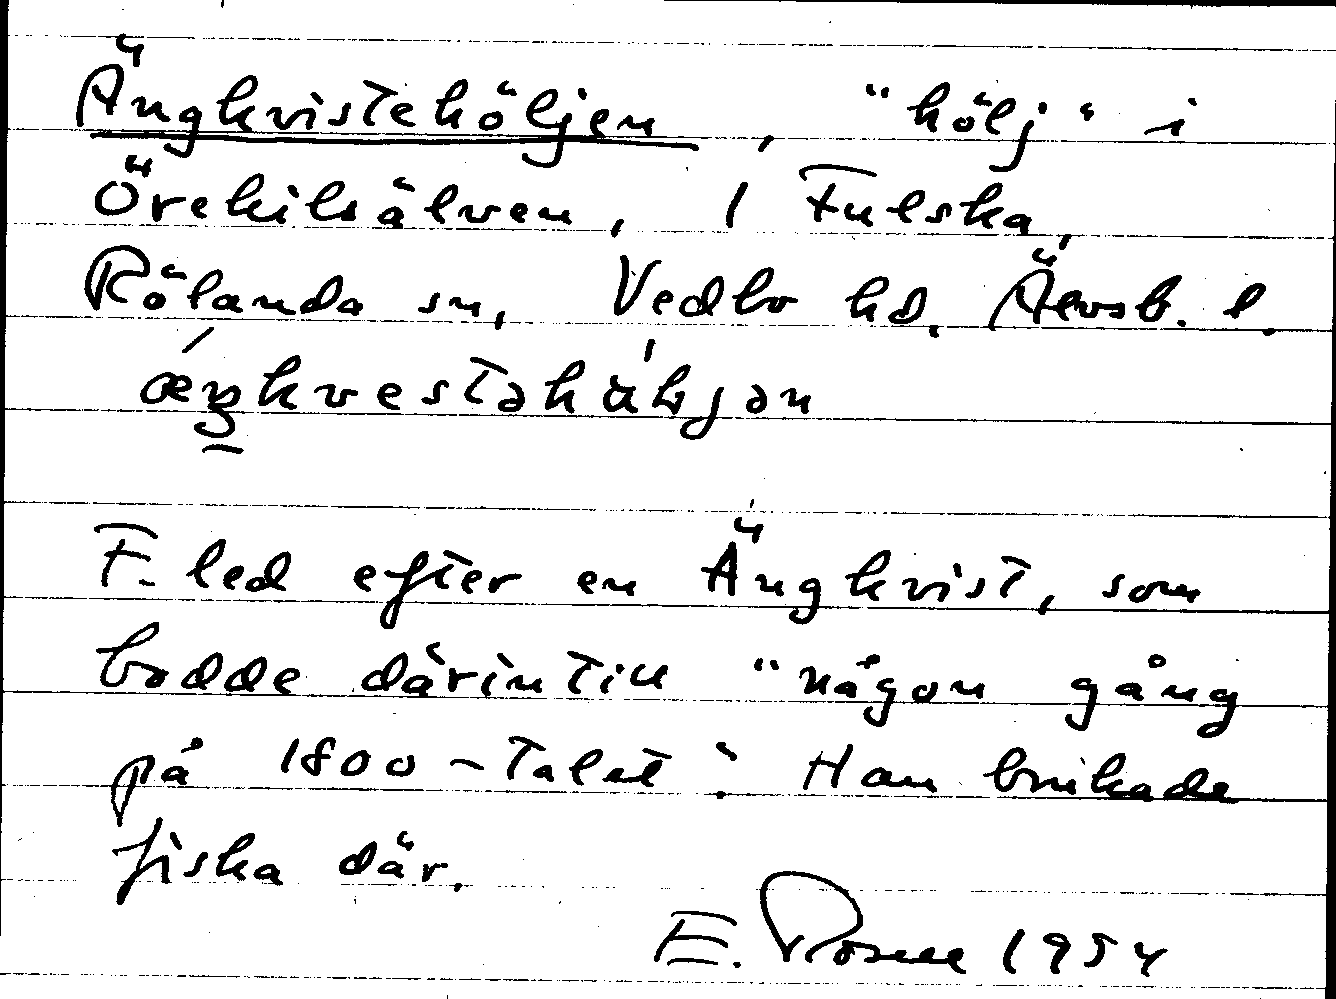 Ängkvistehöljen, "hölj" i
Örekilsälven, 1 Fulska,
Rölanda sn, Vedbo hd. Älvsb. l.
F. led efter en Ängkvist, som
bodde därintill "någon gång
på 1800-talet". Han brukade
fiska där.
E. Rosell 1954